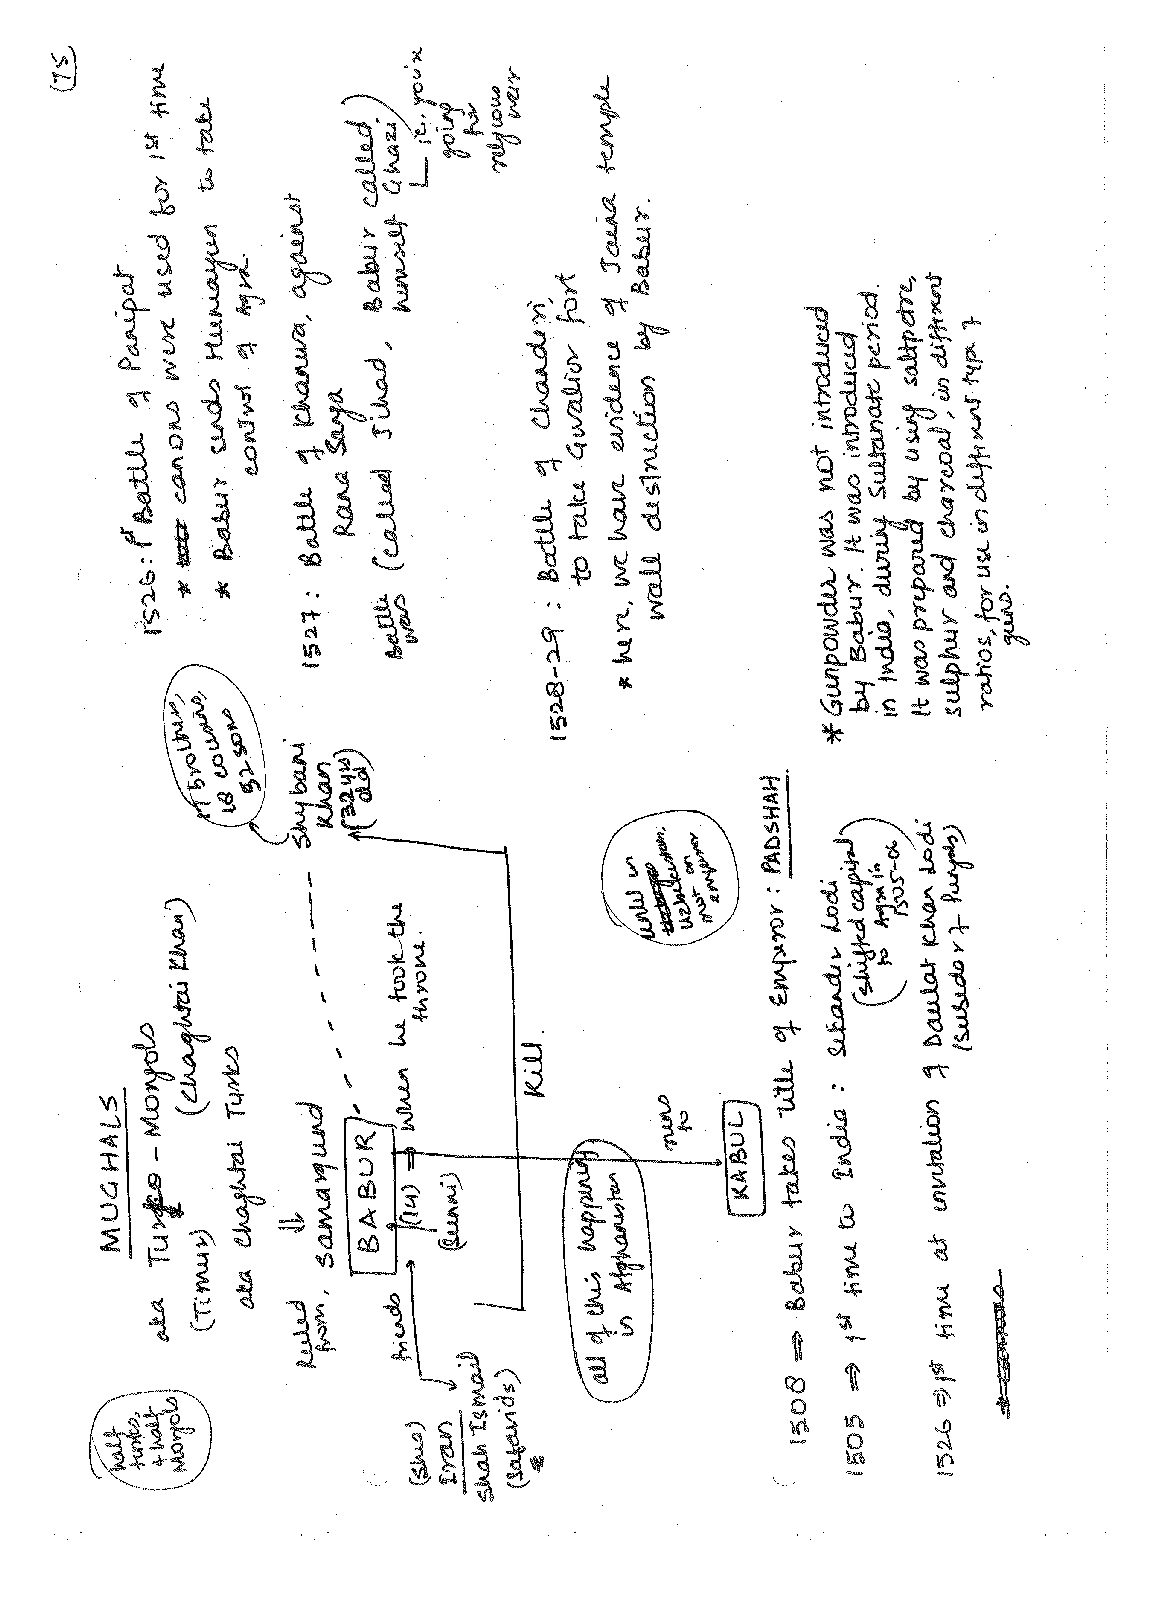 75
MUGHALS
half
turks,
+ half
Mongols
aka Turko - Mongols
(Timur) (Chaghtai Khan)
aka Chaghtai Turks
Ruled
from,
Samarqund
BABUR
Shybani
Khan
(32 yrs
old)
7 brothers,
18 cousins,
32 sons
friends
(14) ⇒ when he took the
throne.
(Sunni)
(Shia)
Iran
Shah Ismail
(Safavids)
Kill
all of this happening
in Afghanistan
runs
to
KABUL
Until in
Uzbekistan,
not an
emperor
1508 ⇒ Babur takes title of Emperor : PADSHAH
1505 ⇒ 1st time to India : Sikander Lodi
(Shifted capital
to Agra in
1505-06)
1526 ⇒ 1st time at invitation of Daulat Khan Lodi
(Subedar of Punjab)
1526 : 1st Battle of Panipat
* canons were used for 1st time
* Babur sends Humayun to take
control of Agra.
1527 : Battle of Khanwa, against
Rana Sanga
Battle (called Jihad, Babur called
was himself Ghazi)
i.e., you're
going
for
religious
war
1528-29 : Battle of Chanderi,
to take Gwalior fort
* here, we have evidence of Jaina temple
wall destruction by Babur.
* Gunpowder was not introduced
by Babur. It was introduced
in India, during Sultanate period.
It was prepared by using saltpetre,
sulphur and charcoal, in different
ratios, for use in different type of
guns.